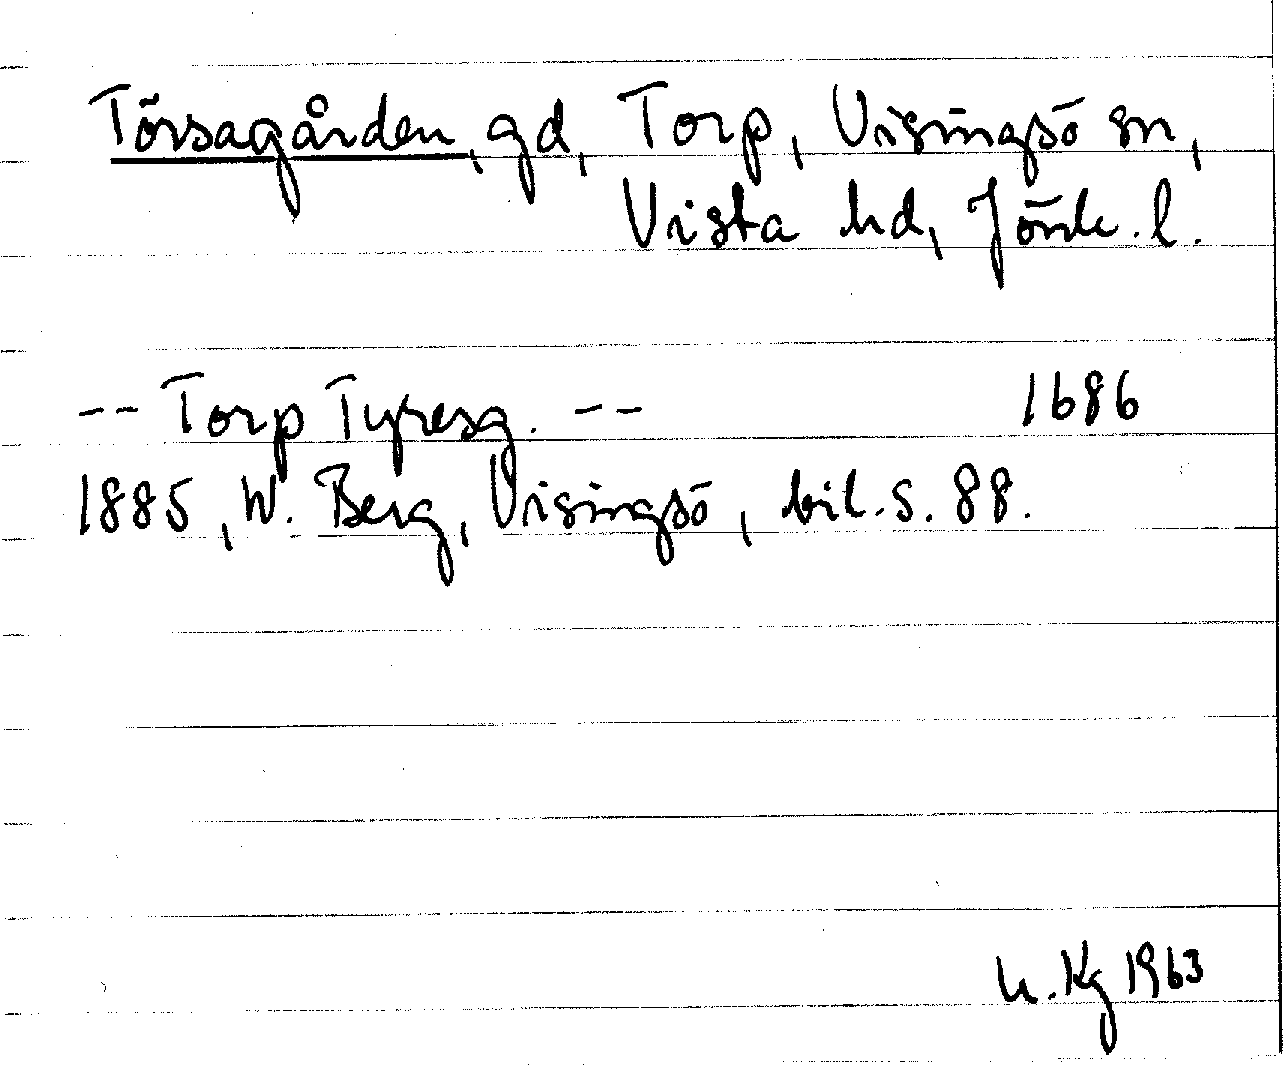 Törsagården, gd, Torp, Visingsö sn,
Vista hd, Jönk. l.
-- Torp Tyresg. -- 1686
1885, W. Berg, Visingsö, bil. s. 88.
h. Kg 1963